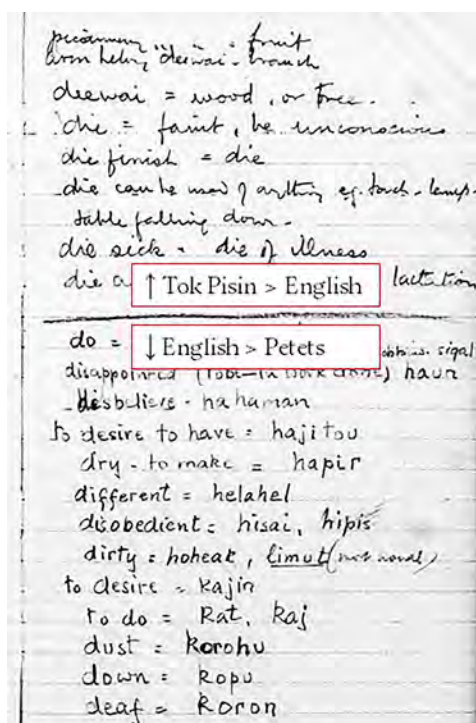 piccaninny = fruit
deewai - branch
deewai = wood, or tree.
die = faint, be unconscious
die finish = die
die can be used of anything eg. torch - lamp -
table falling down -
die sick - die of illness
die a
lactation
↑ Tok Pisin > English
do =
↓ English > Petets
disappointed (tobe—in work done) haun
disbelieve - nahaman
to desire to have = hajitou
dry - to make = hapir
different = helahel
disobedient = hisai, hipis
dirty = hoheak, limut (not usual)
to desire = kajin
to do = Rat, kaj
dust = korohu
down = kopu
deaf = koron